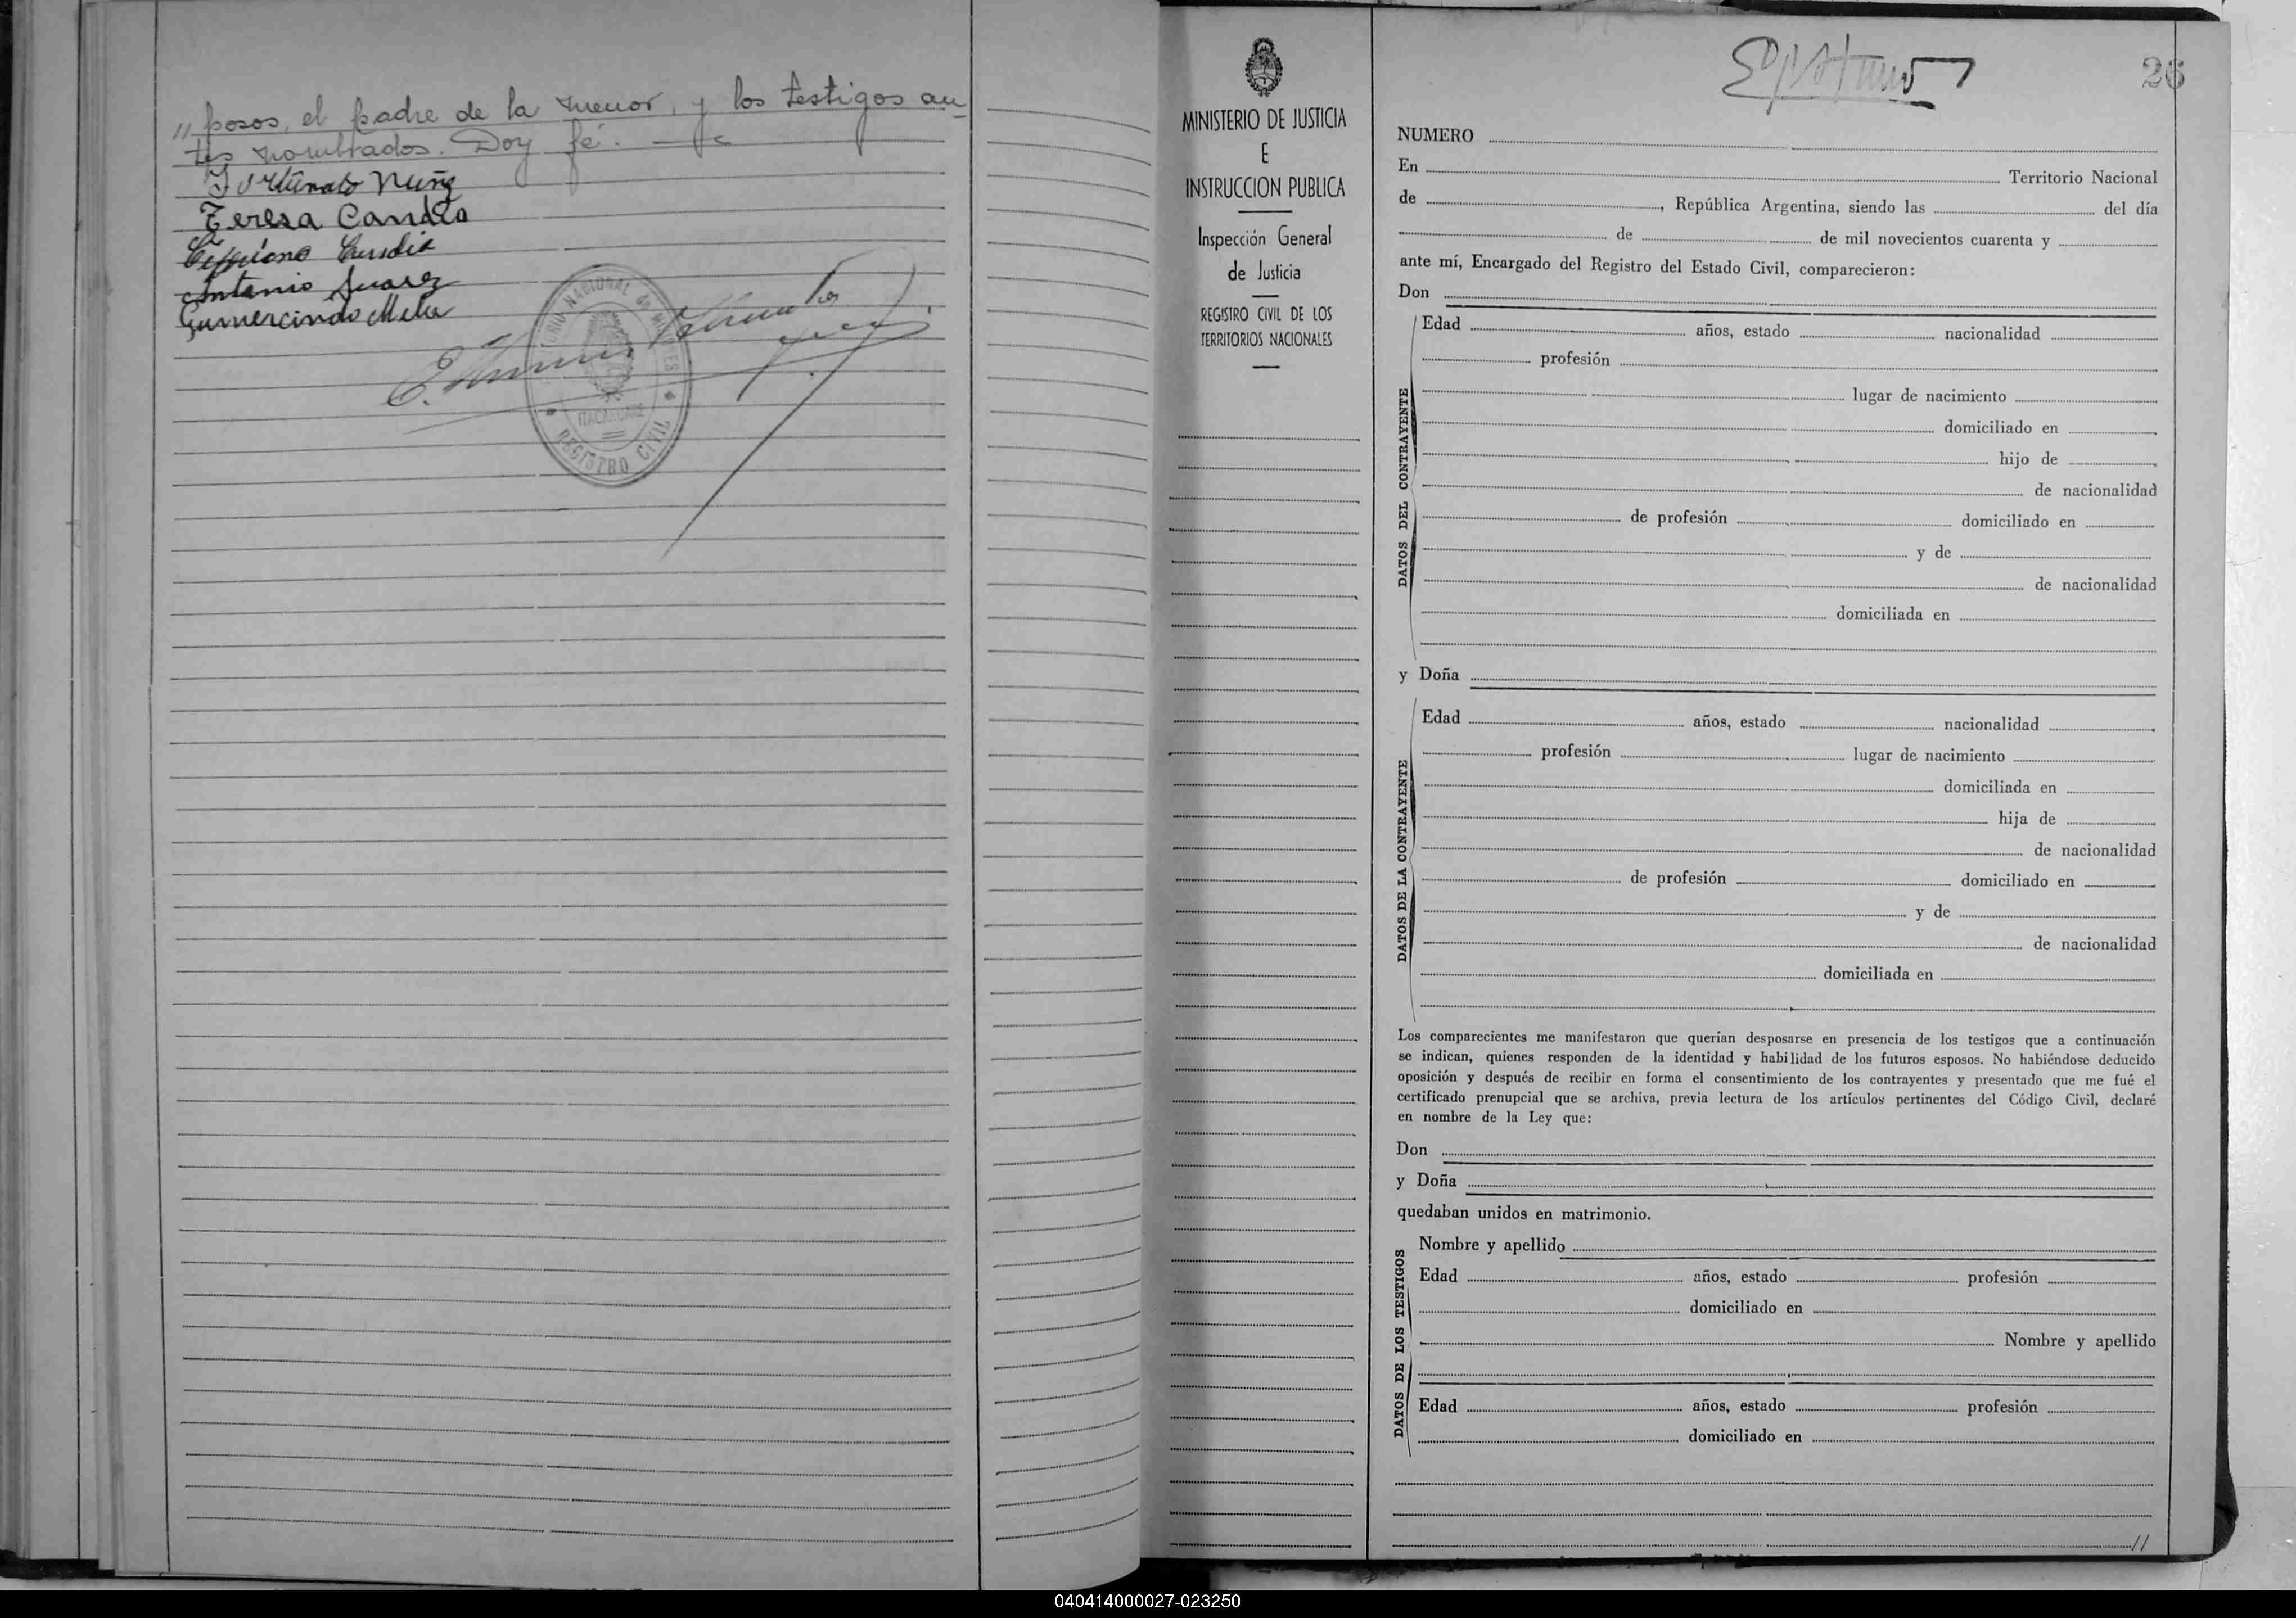 " posos, el padre de la menor, y los testigos an-
tes nombrados. Doy fé.
Fortunato Nuñez
Teresa Candia
Cipriano Candia
Antonio Suarez
Gumercindo Melo
TERRITORIO NACIONAL de MISIONES
ITACARUARE
REGISTRO CIVIL
MINISTERIO DE JUSTICIA
E
INSTRUCCION PUBLICA
Inspección General
de Justicia
REGISTRO CIVIL DE LOS
TERRITORIOS NACIONALES
26
NUMERO
En Territorio Nacional
de , República Argentina, siendo las del día
de de mil novecientos cuarenta y
ante mí, Encargado del Registro del Estado Civil, comparecieron:
Don
DATOS DEL CONTRAYENTE
Edad años, estado nacionalidad
profesión
lugar de nacimiento
domiciliado en
hijo de
de nacionalidad
de profesión domiciliado en
y de
de nacionalidad
domiciliada en
y Doña
DATOS DE LA CONTRAYENTE
Edad años, estado nacionalidad
profesión lugar de nacimiento
domiciliada en
hija de
de nacionalidad
de profesión domiciliado en
y de
de nacionalidad
domiciliada en
Los comparecientes me manifestaron que querían desposarse en presencia de los testigos que a continuación
se indican, quienes responden de la identidad y habilidad de los futuros esposos. No habiéndose deducido
oposición y después de recibir en forma el consentimiento de los contrayentes y presentado que me fué el
certificado prenupcial que se archiva, previa lectura de los artículos pertinentes del Código Civil, declaré
en nombre de la Ley que:
Don
y Doña
quedaban unidos en matrimonio.
DATOS DE LOS TESTIGOS
Nombre y apellido
Edad años, estado profesión
domiciliado en
Nombre y apellido
Edad años, estado profesión
domiciliado en
//
040414000027-023250